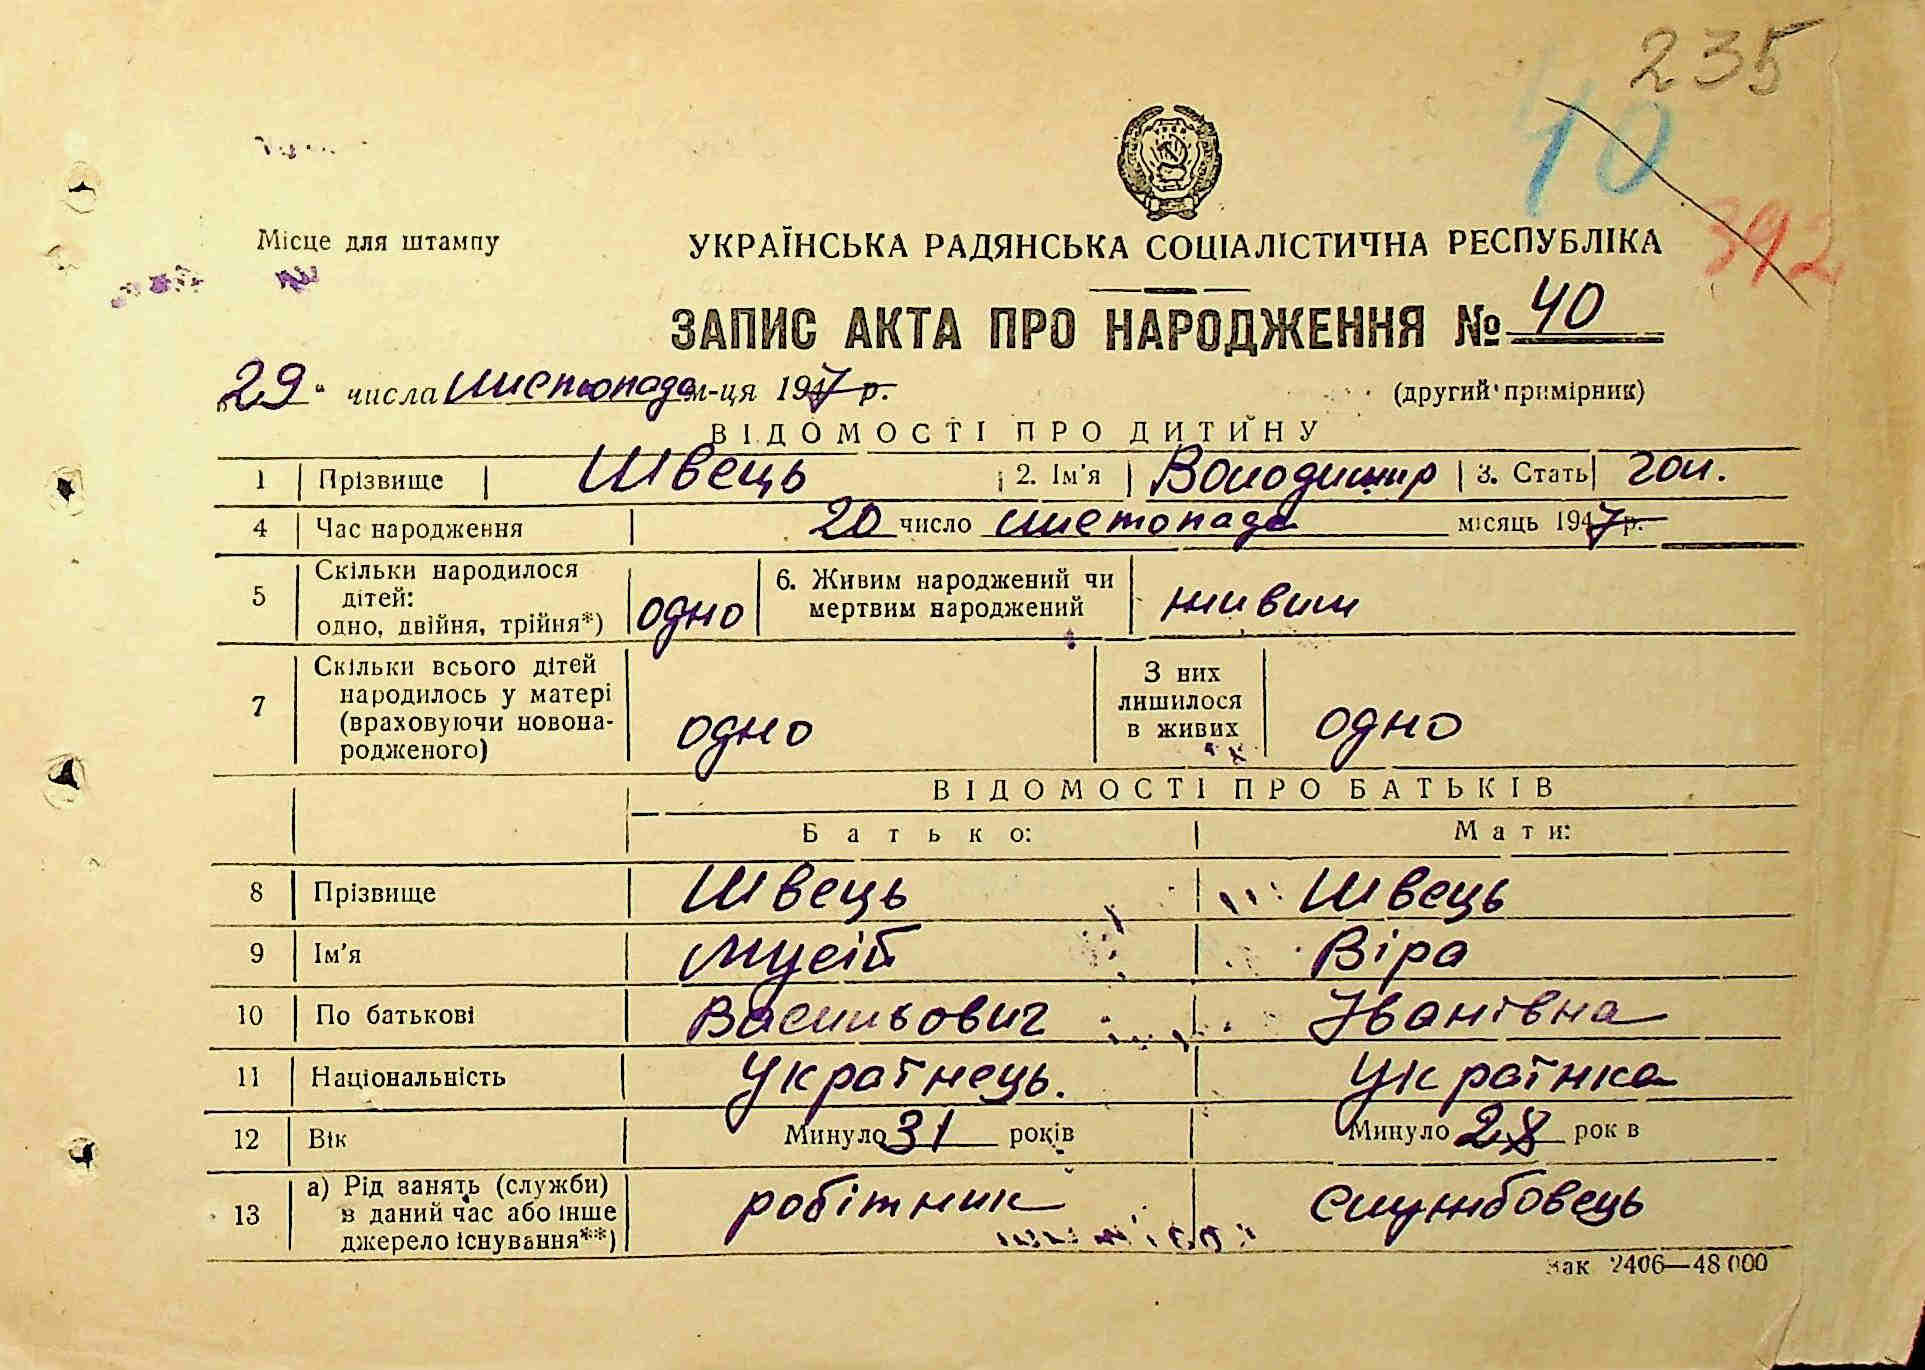 235
40
392
Місце для штампу
УКРАЇНСЬКА РАДЯНСЬКА СОЦІАЛІСТИЧНА РЕСПУБЛІКА
ЗАПИС АКТА ПРО НАРОДЖЕННЯ № 40
„29“ числа листопада м-ця 1947 р.
(другий примірник)
ВІДОМОСТІ ПРО ДИТИНУ
1 Прізвище Швець 2. Ім'я Володимир 3. Стать чол.
4 Час народження 20 число листопада місяць 1947 р.
5 Скільки народилося дітей: одно, двійня, трійня*) одно 6. Живим народжений чи мертвим народжений живим
7 Скільки всього дітей народилось у матері (враховуючи новонародженого) одно З них лишилося в живих одно
ВІДОМОСТІ ПРО БАТЬКІВ
Батько: Мати:
8 Прізвище Швець Швець
9 Ім'я Мусій Віра
10 По батькові Васильович Іванівна
11 Національність Українець. Українка
12 Вік Минуло 31 років Минуло 28 рок в
13 а) Рід занять (служби) в даний час або інше джерело існування**) робітник службовець
Зак 2406—48 000